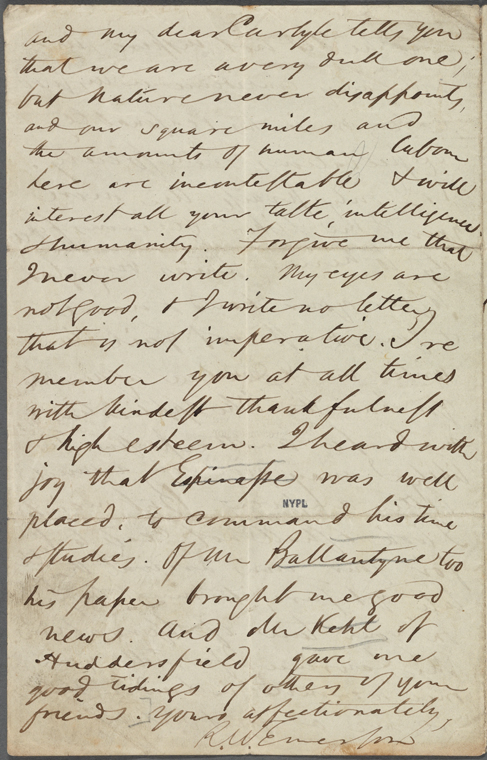 and my dear Carlyle tells you
that we are a very dull one;
but Nature never disappoints,
and our square miles and
the amounts of human labour
here are incontestable & will
interest all your taste, intelligence,
& humanity. Forgive me that
I never write. My eyes are
not good, & I write no letter
that is not imperative. I re
member you at all times
with kindest thankfulness
& high esteem. I heard with
joy that Espinasse was well
placed, to command his time
& studies. Of Mr Ballantyne too
his paper brought me good
news. And Mr Kehl of
Huddersfield gave me
good tidings of others of your
friends. Yours affectionately,
R. W. Emerson
NYPL